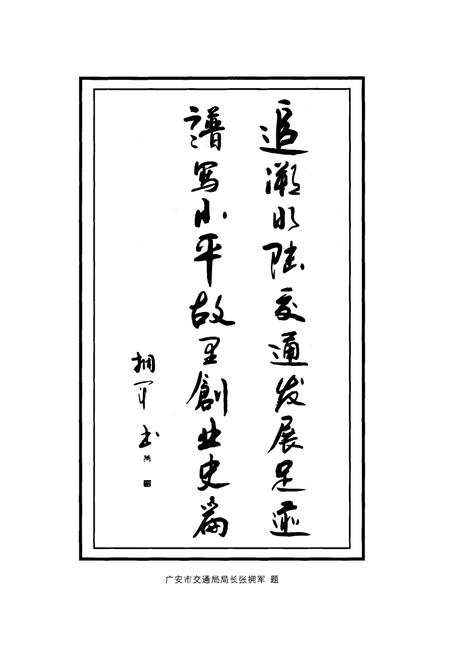 追溯水陆交通发展足迹
谱寫小平故里創业史篇
拥军书
广安市交通局局长张拥军 题